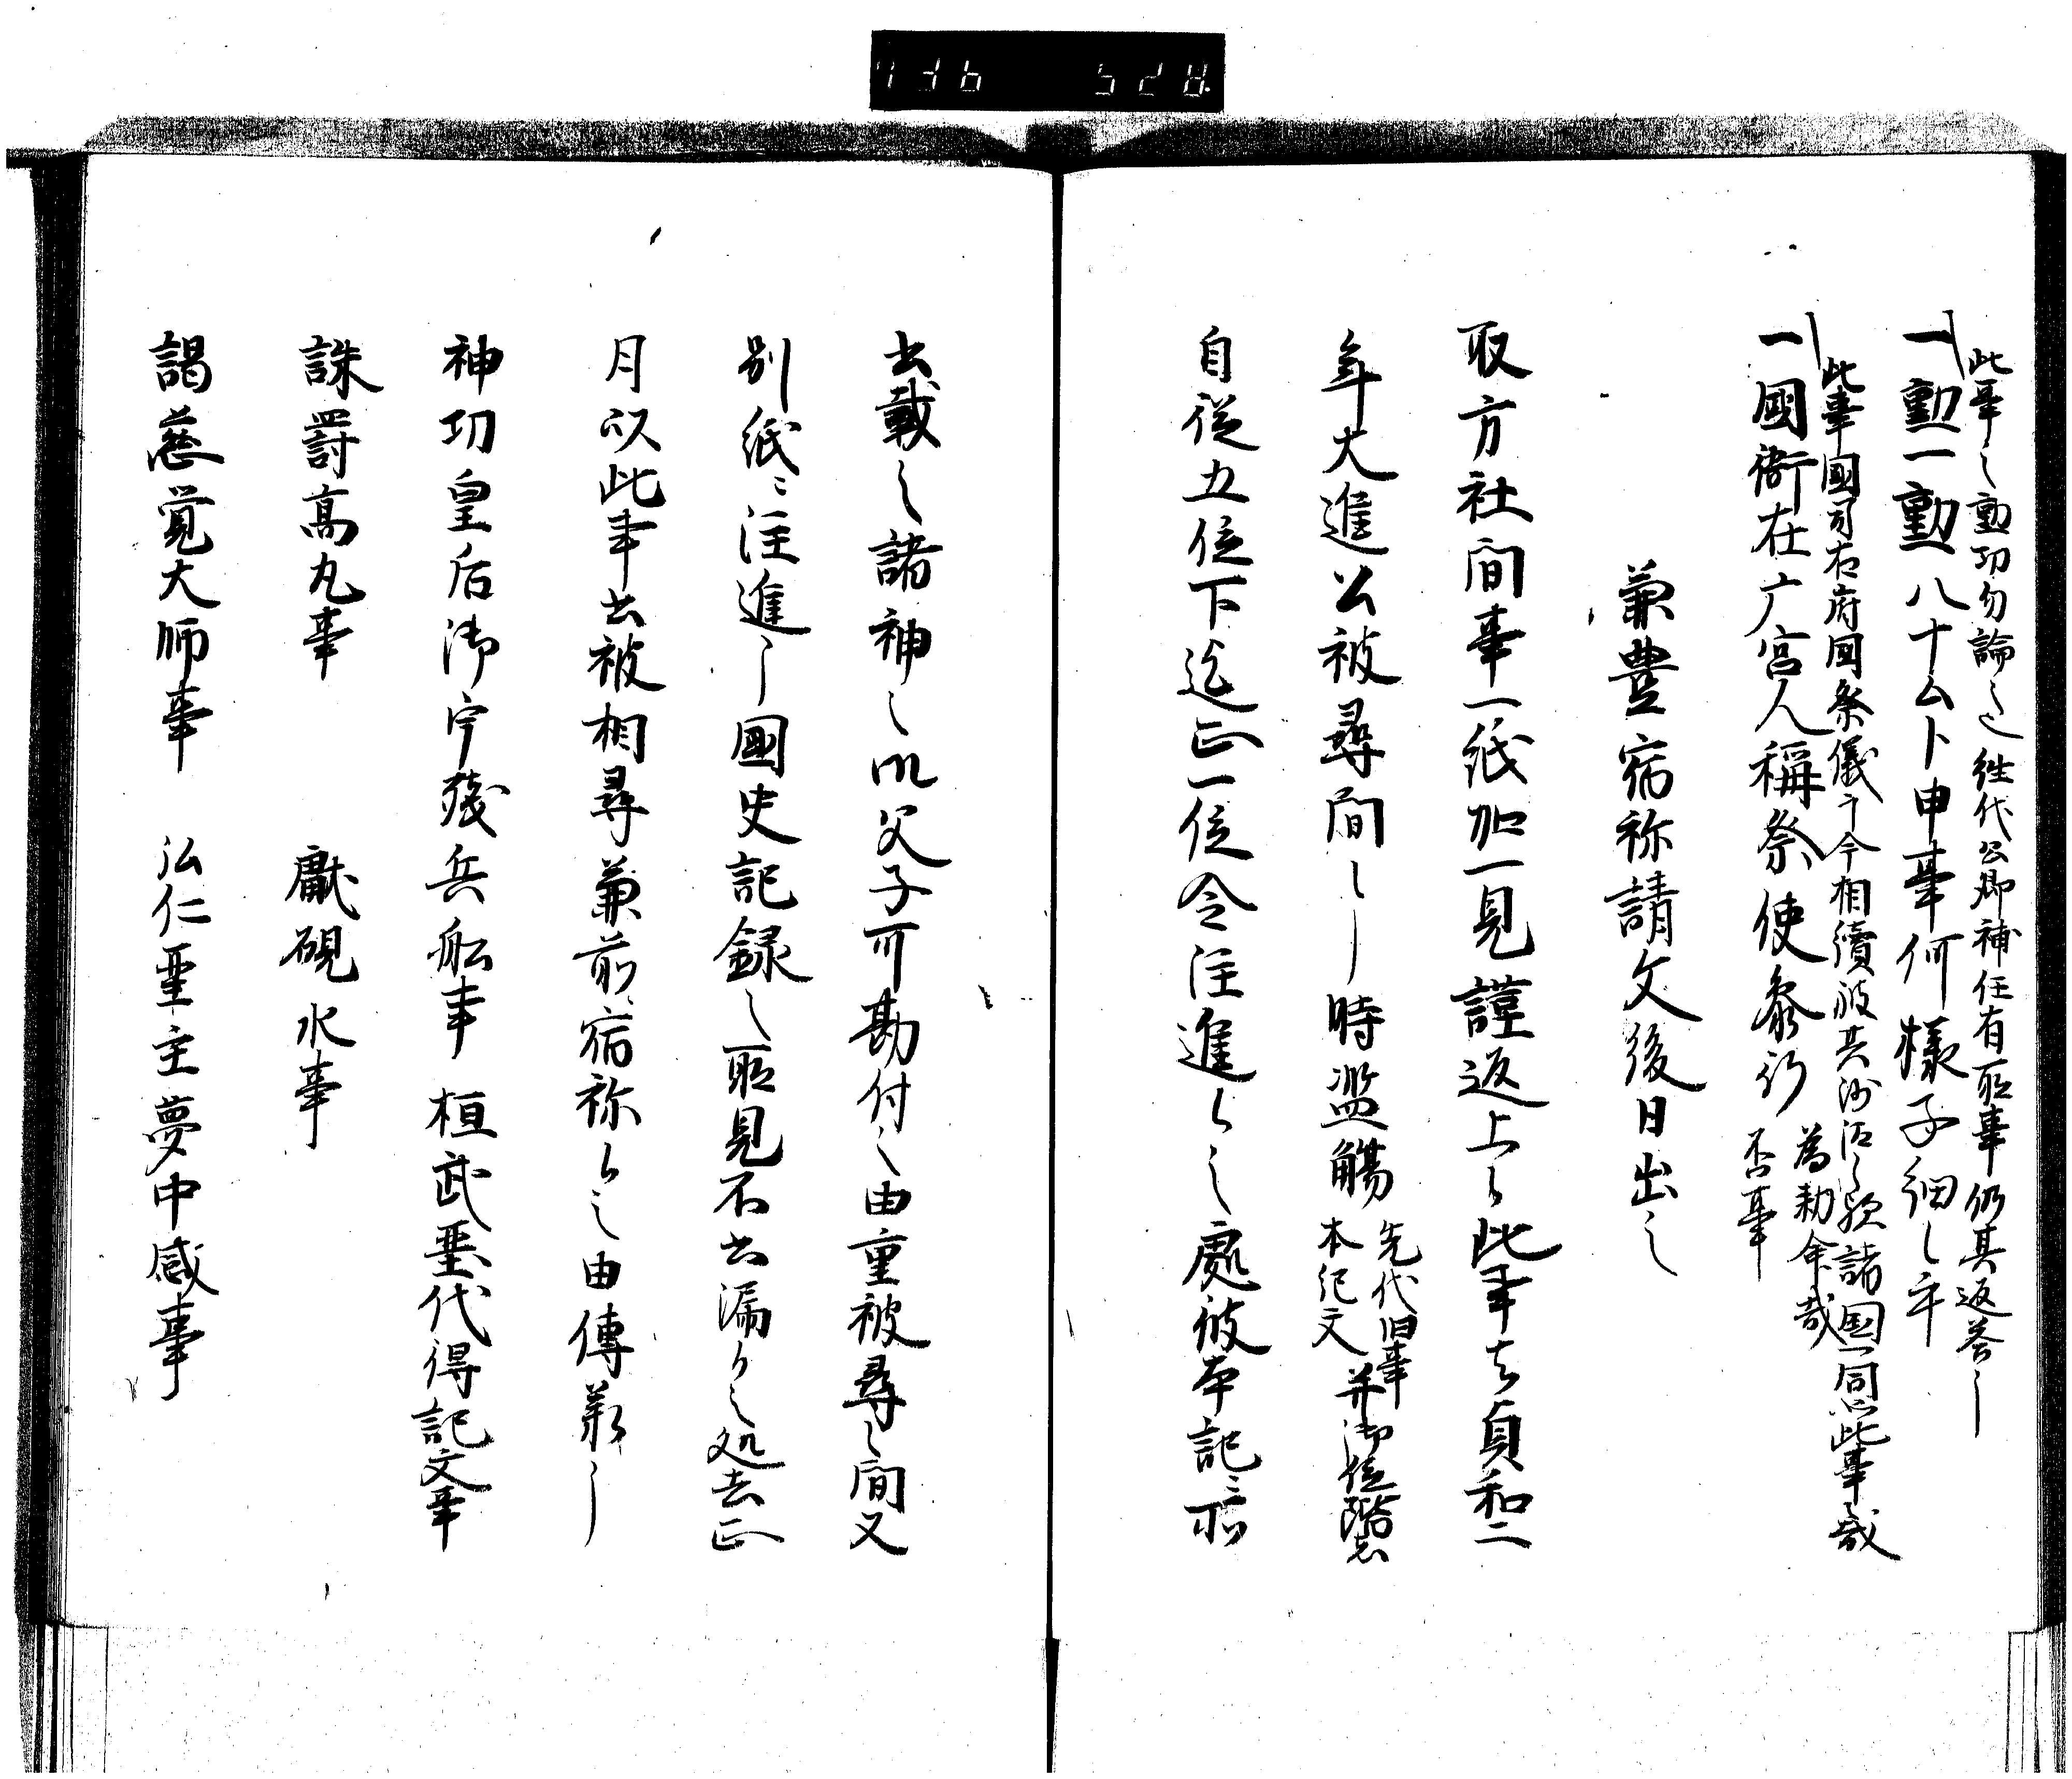 此事之勲功勿論之 継代公卿補任有所事仍其返答了
一勲一勲八十ム卜申事何様子細之乎
此事國司右府国祭儀于今相續被其沙汰之歟諸国一同此事哉
一國衙在庁官人稱祭使参行 為勅命哉
否事
兼豊宿祢請文後日出之
取方社間事一紙加一見謹返上候此事去貞和二
年大進公被尋間之了時濫觴 先代旧事
本紀文 并御位階
自従五位下迄正一位令注進候之處彼本記ニ所
出載之諸神之御父子可勘付之由重被尋之間又
別紙ニ注進了國史記録之所見不出漏候之処去正
月以此事去被相尋兼前宿祢候之由傳承了
神功皇后御宇残兵船事 桓武聖代得記文事
誅罸高丸事 獻硯水事
謁慈覚大師事 弘仁聖主夢中感事